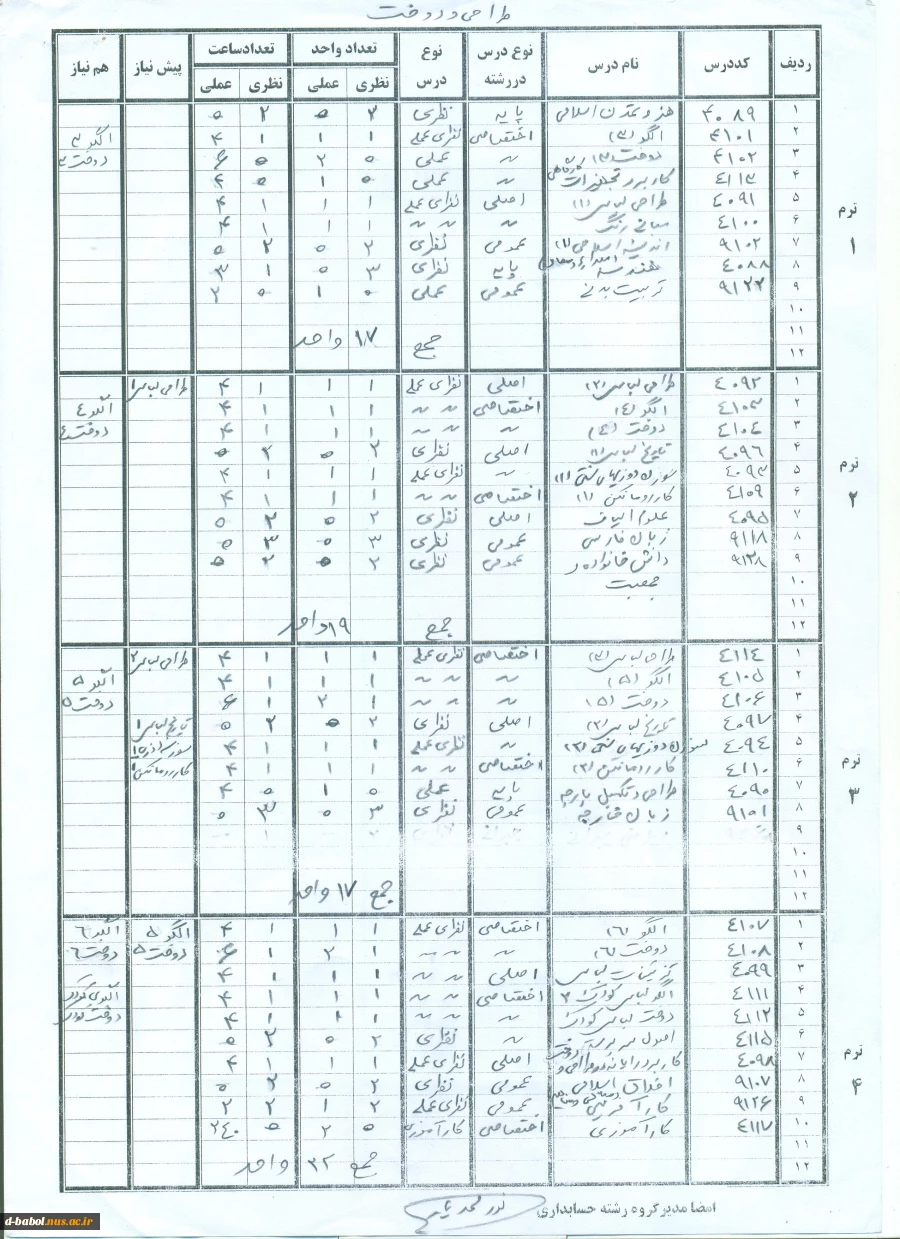 طراحی و دوخت
ردیف کددرس نام درس نوع درس دررشته نوع درس تعداد واحد تعدادساعت پیش نیاز هم نیاز
نظری عملی نظری عملی
ترم ۱
۱ ۴۰۸۹ هنر و تمدن اسلامی پایه نظری ۲ ۰ ۲ ۰
۲ ۴۱۰۱ الگو (۳) اختصاصی نظری عملی ۱ ۱ ۱ ۴ الگو ۳
۳ ۴۱۰۲ دوخت (۳) " عملی ۰ ۲ ۰ ۶ دوخت ۳
۴ ۴۱۱۳ کاربرد تجهیزات کارگاهی " عملی ۰ ۱ ۰ ۴
۵ ۴۰۹۱ طراحی لباس (۱) اصلی نظری عملی ۱ ۱ ۱ ۴
۶ ۴۱۰۰ مبانی رنگ " " " ۱ ۱ ۱ ۴
۷ ۹۱۰۲ اندیشه اسلامی (۱) عمومی نظری ۲ ۰ ۲ ۰
۸ ۴۰۸۸ هندسه پایه نظری ۳ ۰ ۱ ۳
۹ ۹۱۲۲ تربیت بدنی عمومی عملی ۰ ۱ ۰ ۲
۱۰
۱۱ جمع ۱۷ واحد
۱۲
ترم ۲
۱ ۴۰۹۲ طراحی لباس (۲) اصلی نظری عملی ۱ ۱ ۱ ۴ طراحی لباس ۱
۲ ۴۱۰۳ الگو (۴) اختصاصی " " ۱ ۱ ۱ ۴ الگو ۴
۳ ۴۱۰۴ دوخت (۴) " " " ۱ ۱ ۱ ۴ دوخت ۴
۴ ۴۰۹۶ تاریخ لباس (۱) اصلی نظری ۲ ۰ ۲ ۰
۵ ۴۰۹۳ سوزن دوزیهای سنتی (۱) " نظری عملی ۱ ۱ ۱ ۴
۶ ۴۱۰۹ کار روی مانکن (۱) اختصاصی " " ۱ ۱ ۱ ۴
۷ ۴۰۹۵ علوم الیاف اصلی نظری ۲ ۰ ۲ ۰
۸ ۹۱۱۸ زبان فارسی عمومی نظری ۳ ۰ ۳ ۰
۹ ۹۱۳۸ دانش خانواده و عمومی نظری ۲ ۰ ۲ ۰
۱۰ جمعیت
۱۱
۱۲ جمع ۱۹ واحد
ترم ۳
۱ ۴۱۱۴ طراحی لباس (۳) اختصاصی نظری عملی ۱ ۱ ۱ ۴ طراحی لباس ۲
۲ ۴۱۰۵ الگو (۵) " " " ۱ ۱ ۱ ۴ الگو ۵
۳ ۴۱۰۶ دوخت (۵) " " " ۱ ۲ ۱ ۶ دوخت ۵
۴ ۴۰۹۷ تاریخ لباس (۲) اصلی نظری ۲ ۰ ۲ ۰ تاریخ لباس ۱
۵ ۴۰۹۴ سوزن دوزیهای سنتی (۲) " نظری عملی ۱ ۱ ۱ ۴
۶ ۴۱۱۰ کار روی مانکن (۲) اختصاصی " " ۱ ۱ ۱ ۴ کار روی مانکن ۱
۷ ۴۰۹۰ طراحی و تکمیل پارچه پایه عملی ۰ ۱ ۰ ۴
۸ ۹۱۰۱ زبان خارجه عمومی نظری ۳ ۰ ۳ ۰
۹
۱۰
۱۱
۱۲ جمع ۱۷ واحد
ترم ۴
۱ ۴۱۰۷ الگو (۶) اختصاصی نظری عملی ۱ ۱ ۱ ۴ الگو ۵ الگو ۶
۲ ۴۱۰۸ دوخت (۶) " " " ۱ ۲ ۱ ۶ دوخت ۵ دوخت ۶
۳ ۴۰۹۹ تزئینات لباس اصلی " " ۱ ۱ ۱ ۴
۴ ۴۱۱۱ الگو لباس کودک اختصاصی " " ۱ ۱ ۱ ۴ الگوی کودک
۵ ۴۱۱۲ دوخت لباس کودک " " " ۱ ۱ ۱ ۴ دوخت کودک
۶ ۴۱۱۵ اصول سرپرستی " نظری ۲ ۰ ۲ ۰
۷ ۴۰۹۸ کاربرد رایانه در طراحی و دوخت اصلی نظری عملی ۱ ۱ ۱ ۴
۸ ۹۱۰۷ اخلاق اسلامی عمومی نظری ۲ ۰ ۲ ۰
۹ ۹۱۲۶ کارآفرینی عمومی نظری عملی ۲ ۱ ۲ ۲
۱۰ ۴۱۱۷ کارآموزی اختصاصی کارآموزی ۰ ۲ ۰ ۲۴۰
۱۱
۱۲ جمع ۲۲ واحد
امضا مدیر گروه رشته حسابداری
d-babol.nus.ac.ir